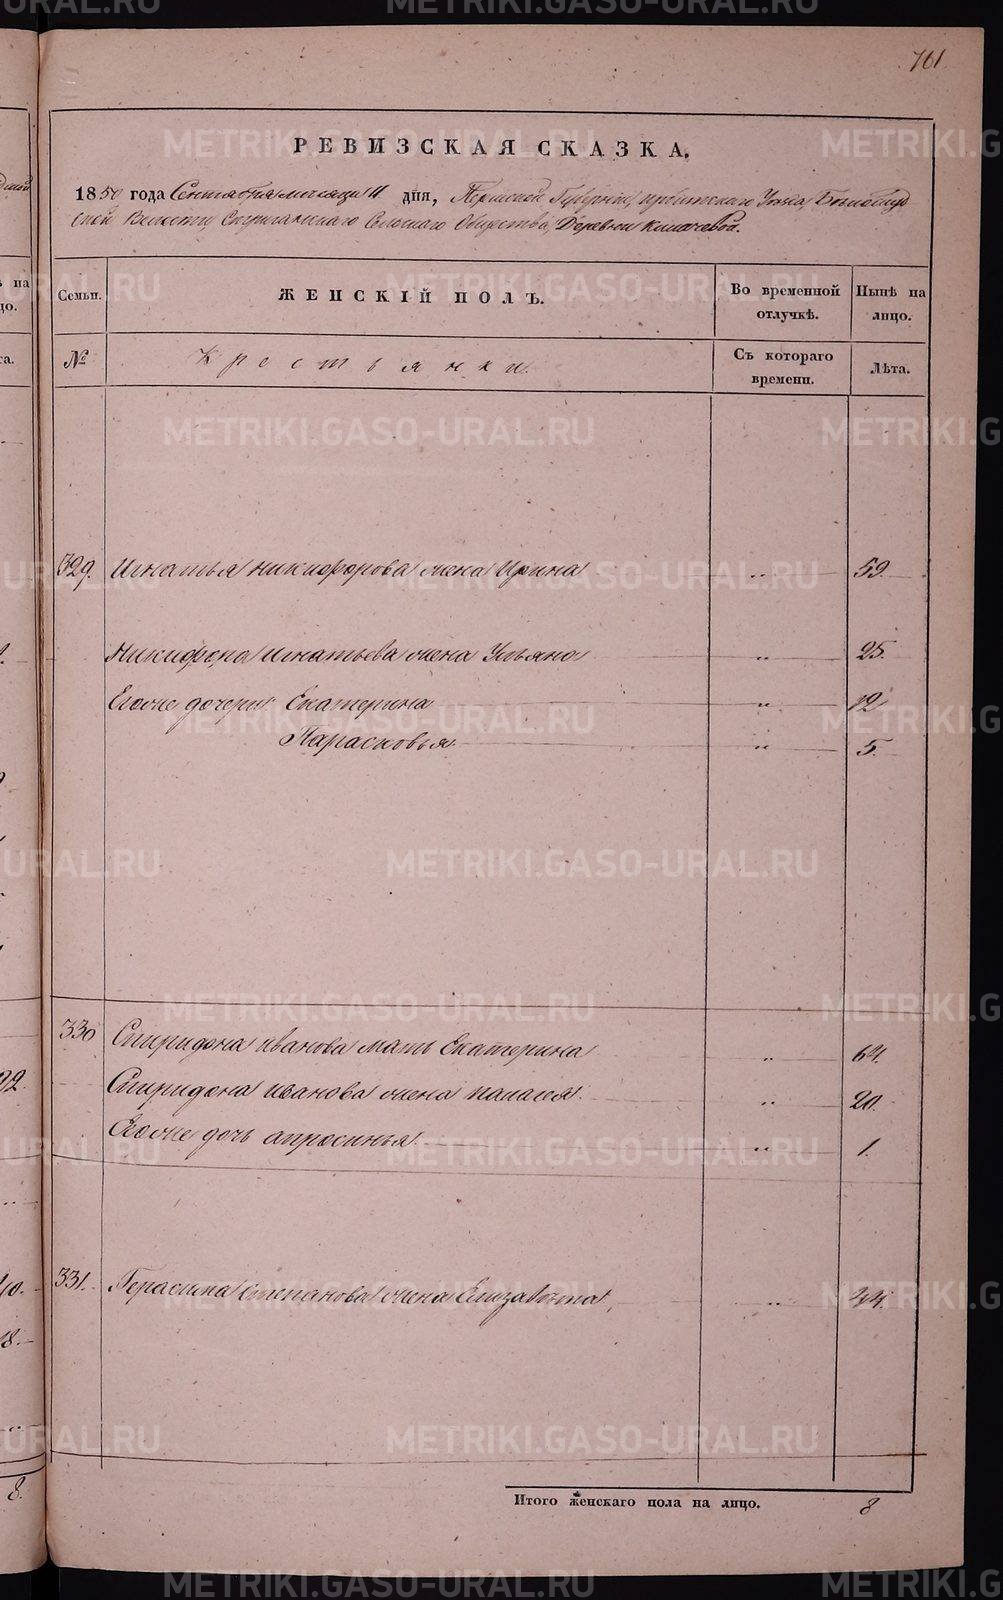 761
РЕВИЗСКАЯ СКАЗКА.
1850 года Сентября месяца 11 дня, Пермской Губернии, Ирбитского Уезда
ской Волости Скоринского Сельского Общества, Деревни Ключевой.
Семьи. ЖЕНСКІЙ ПОЛЪ. Во временной отлучкѣ. Нынѣ на лицо.
№ Крестьянки. Съ котораго времени. Лѣта.
329. Игнатья Никифорова жена Ирина „ 59.
Никифора Игнатьева жена Ульяна „ 25.
Егоже дочери Екатерина „ 12
Парасковья „ 5.
330 Спиридона Иванова мать Екатерина „ 64.
Спиридона Иванова жена Палагея „ 20.
Егоже дочь Апросинья „ 1.
331. Герасима Степанова жена Елизавета, „ 44.
Итого женскаго пола на лицо. 8
METRIKI.GASO-URAL.RU